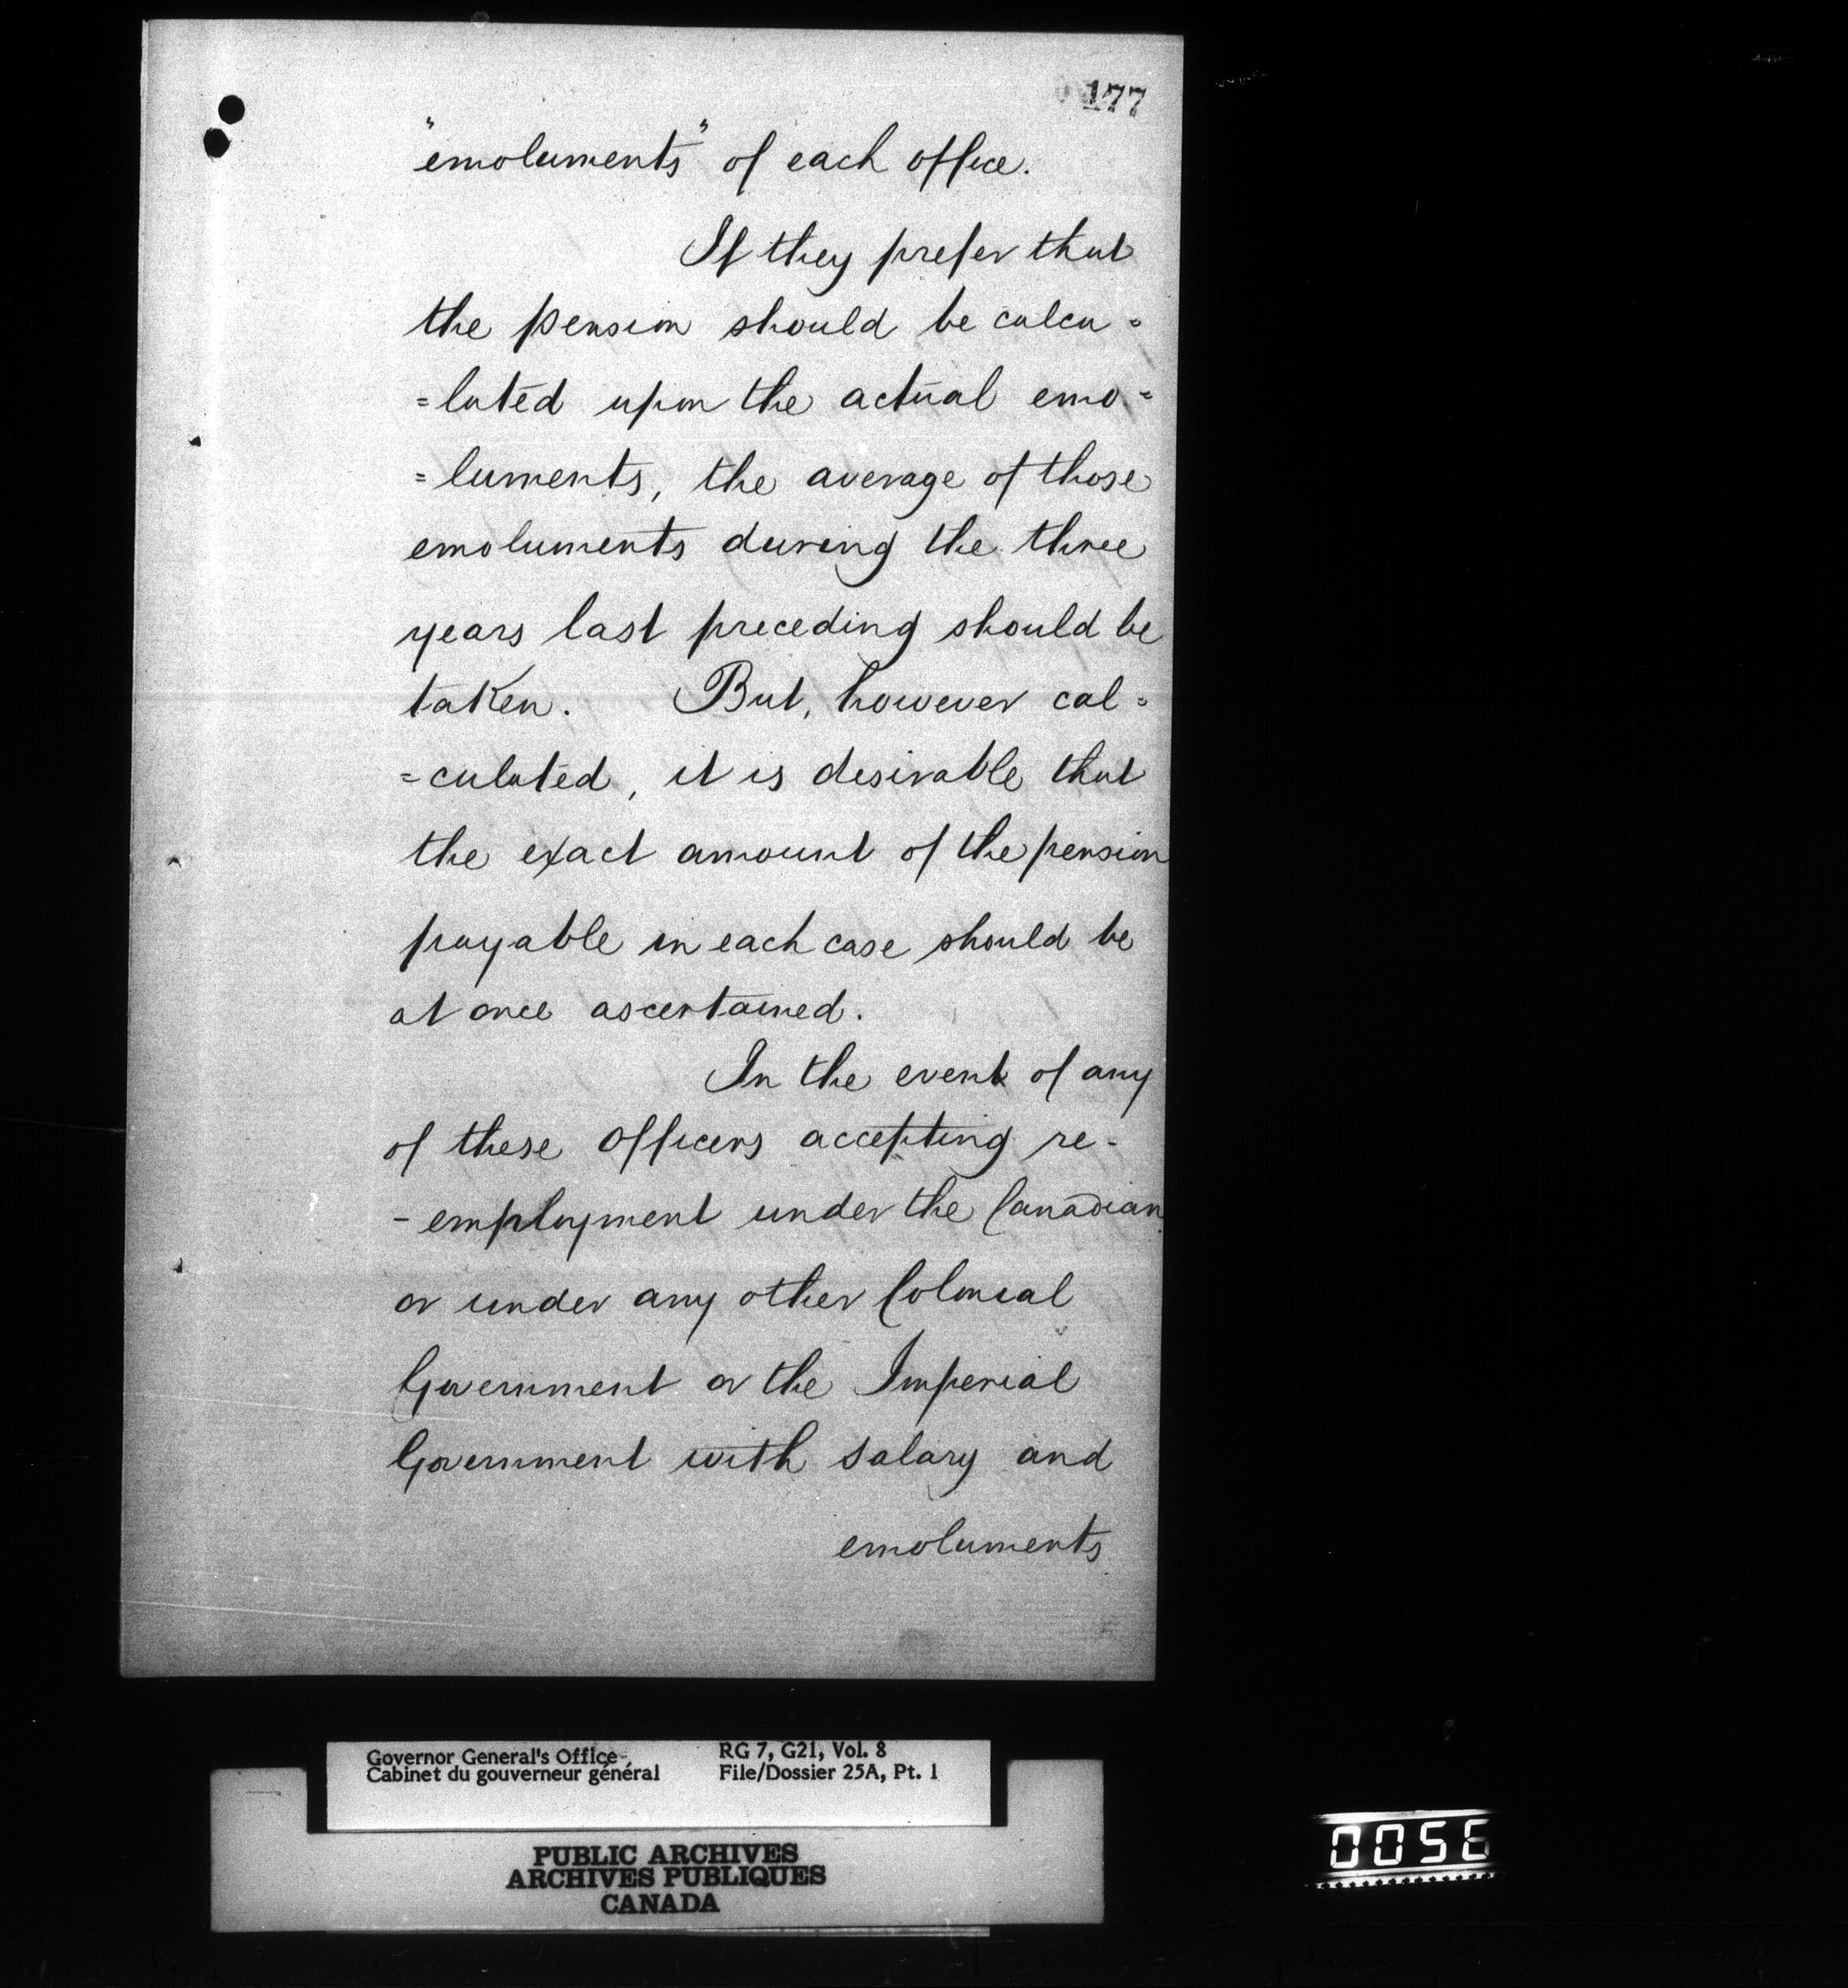 177
"emoluments" of each office.
If they prefer that
the pension should be calcu=
=lated upon the actual emo=
=luments, the average of those
emoluments during the three
years last preceding should be
taken. But, however cal=
=culated, it is desirable that
the exact amount of the pension
payable in each case should be
at once ascertained.
In the event of any
of these Officers accepting re-
-employment under the Canadian
or under any other Colonial
Government or the Imperial
Government with salary and
emoluments
Governor General's Office RG 7, G21, Vol. 8
Cabinet du gouverneur général File/Dossier 25A, Pt. 1
PUBLIC ARCHIVES
ARCHIVES PUBLIQUES
CANADA